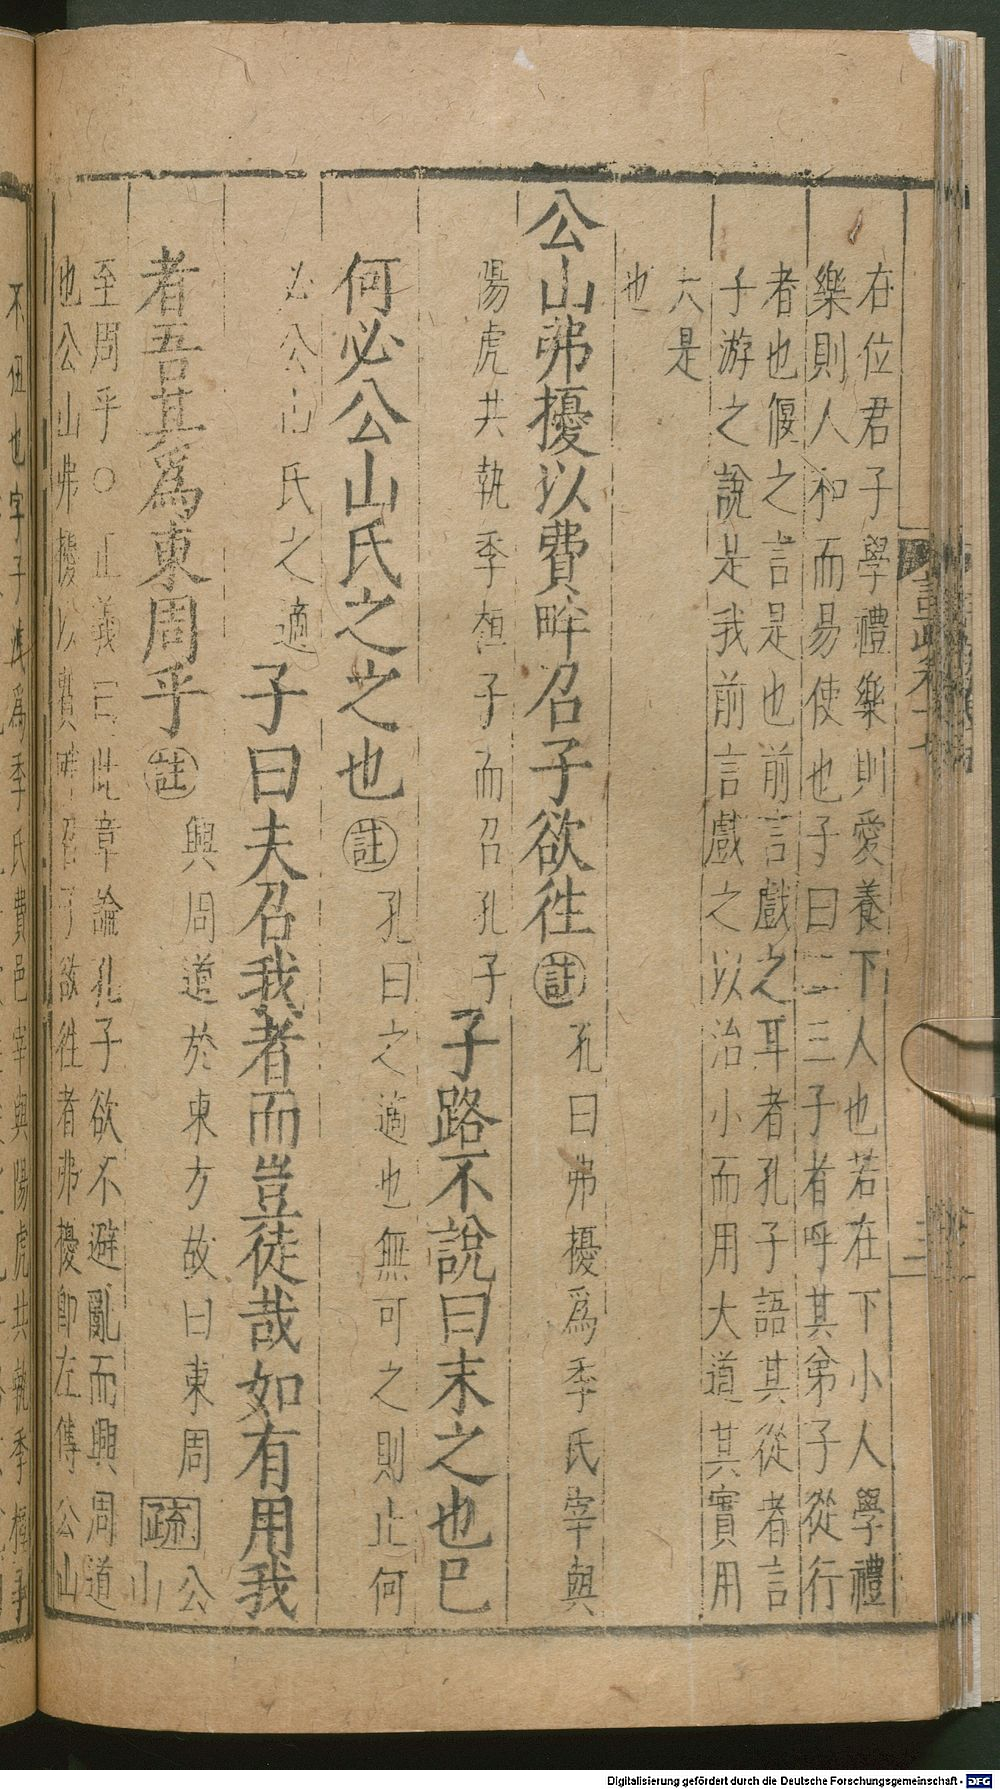 在位君子學禮樂則愛養下人也若在下小人學禮
樂則人和而易使也子曰二三子者呼其弟子從行
者也偃之言是也前言戲之耳者孔子語其從者言
子游之說是我前言戲之以治小而用大道其實用
大是
也
公山弗擾以費畔召子欲徃註孔曰弗擾爲季氏宰與
陽虎共執季桓子而召孔子
子路不說曰末之也巳
何必公山氏之之也註孔曰之適也無可之則止何
必公山氏之適
子曰夫召我者而豈徒哉如有用我
者吾其爲東周乎註興周道於東方故曰東周疏公
山
至周乎○正義曰此章論孔子欲不避亂而興周道
也公山弗擾以費畔召子欲徃者弗擾卽左傳公山
不 也字子洩爲季氏費邑宰與陽虎共執季桓子
Digitalisierung gefördert durch die Deutsche Forschungsgemeinschaft - DFG